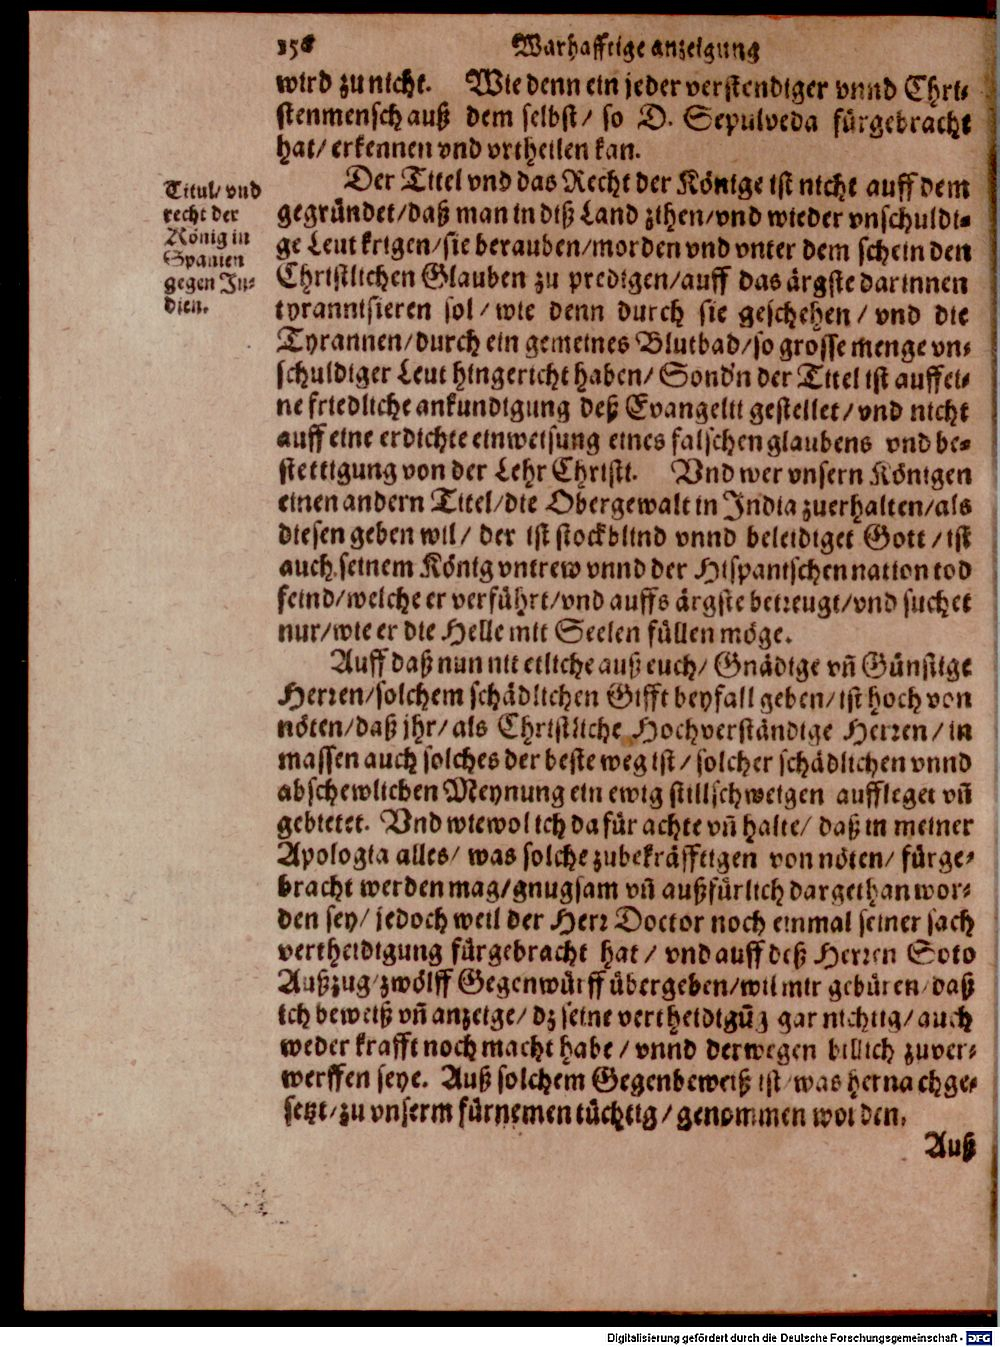 156 Warhafftige anzeigung
wird zu nicht. Wie denn ein jeder verstendiger vnnd Chri-
stenmensch auß dem selbst/ so D. Sepulveda fürgebracht
hat/ erkennen vnd vrtheilen kan.
Der Titel vnd das Recht der Könige ist nicht auff dem
gegründet/ daß man in diß Land zihen/ vnd wieder vnschuldi-
ge Leut krigen/ sie berauben/ morden vnd vnter dem schein den
Christlichen Glauben zu predigen/ auff das ärgste darinnen
tyrannisieren sol/ wie denn durch sie geschehen/ vnd die
Tyrannen/ durch ein gemeines Blutbad/ so grosse menge vn-
schuldiger Leut hingericht haben/ Sond'n der Titel ist auff ei-
ne friedliche ankundigung deß Evangelii gestellet/ vnd nicht
auff eine erdichte einweisung eines falschen glaubens vnd be-
stettigung von der Lehr Christi. Vnd wer vnsern Königen
einen andern Titel/ die Obergewalt in India zuerhalten/ als
diesen geben wil/ der ist stockblind vnnd beleidiget Gott/ ist
auch seinem König vntrew vnnd der Hispanischen nation tod
feind/ welche er verführt/ vnd auffs ärgste betreugt/ vnd suchet
nur/ wie er die Helle mit Seelen füllen möge.
Titul/ vnd
recht der
König in
Spanien
gegen In-
dien.
Auff daß nun nit etliche auß euch/ Gnädige vn̄ Günstige
Herren/ solchem schädlichen Gifft beyfall geben/ ist hoch von
nöten/ daß jhr/ als Christliche Hochverständige Herren/ in
massen auch solches der beste weg ist/ solcher schädlichen vnnd
abschewlichen Meynung ein ewig stillschweigen aufflegei vn̄
gebietet. Vnd wiewol ich da für achte vn̄ halte/ daß in meiner
Apologia alles/ was solche zubekräfftigen von nöten/ fürge-
bracht werden mag/ gnugsam vn̄ außfürlich dargethan wor-
den sey/ jedoch weil der Herr Doctor noch einmal seiner sach
vertheidigung fürgebracht hat/ vnd auff deß Herren Soto
Außzug/ zwölff Gegenwürff übergeben/ wil mir gebüren/ daß
ich beweiß vn̄ anzeige/ dz seine vertheidigūg gar nichtig/ auch
weder krafft noch macht habe/ vnnd derwegen billich zuver-
werffen seye. Auß solchem Gegenbeweiß ist/ was hernach ge-
setzt/ zu vnserm fürnemen tüchtig/ genommen worden.
Auß
Digitalisierung gefördert durch die Deutsche Forschungsgemeinschaft - DFG